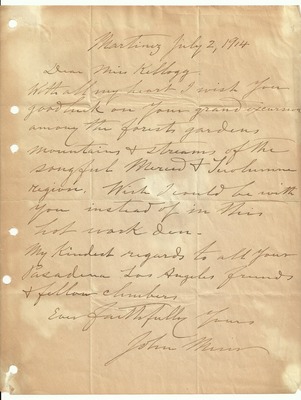 Martinez July 2, 1914
Dear Miss Kellogg.
With all my heart I wish you
good luck on your grand excursion
among the forests gardens
mountains & streams of the
songful Merced & Tuolumne
region. Wish I could be with
you instead of in this
hot work den-
My kindest regards to all your
Pasadena Los Angeles friends
& fellow climbers
Ever faithfully Yours
John Muir